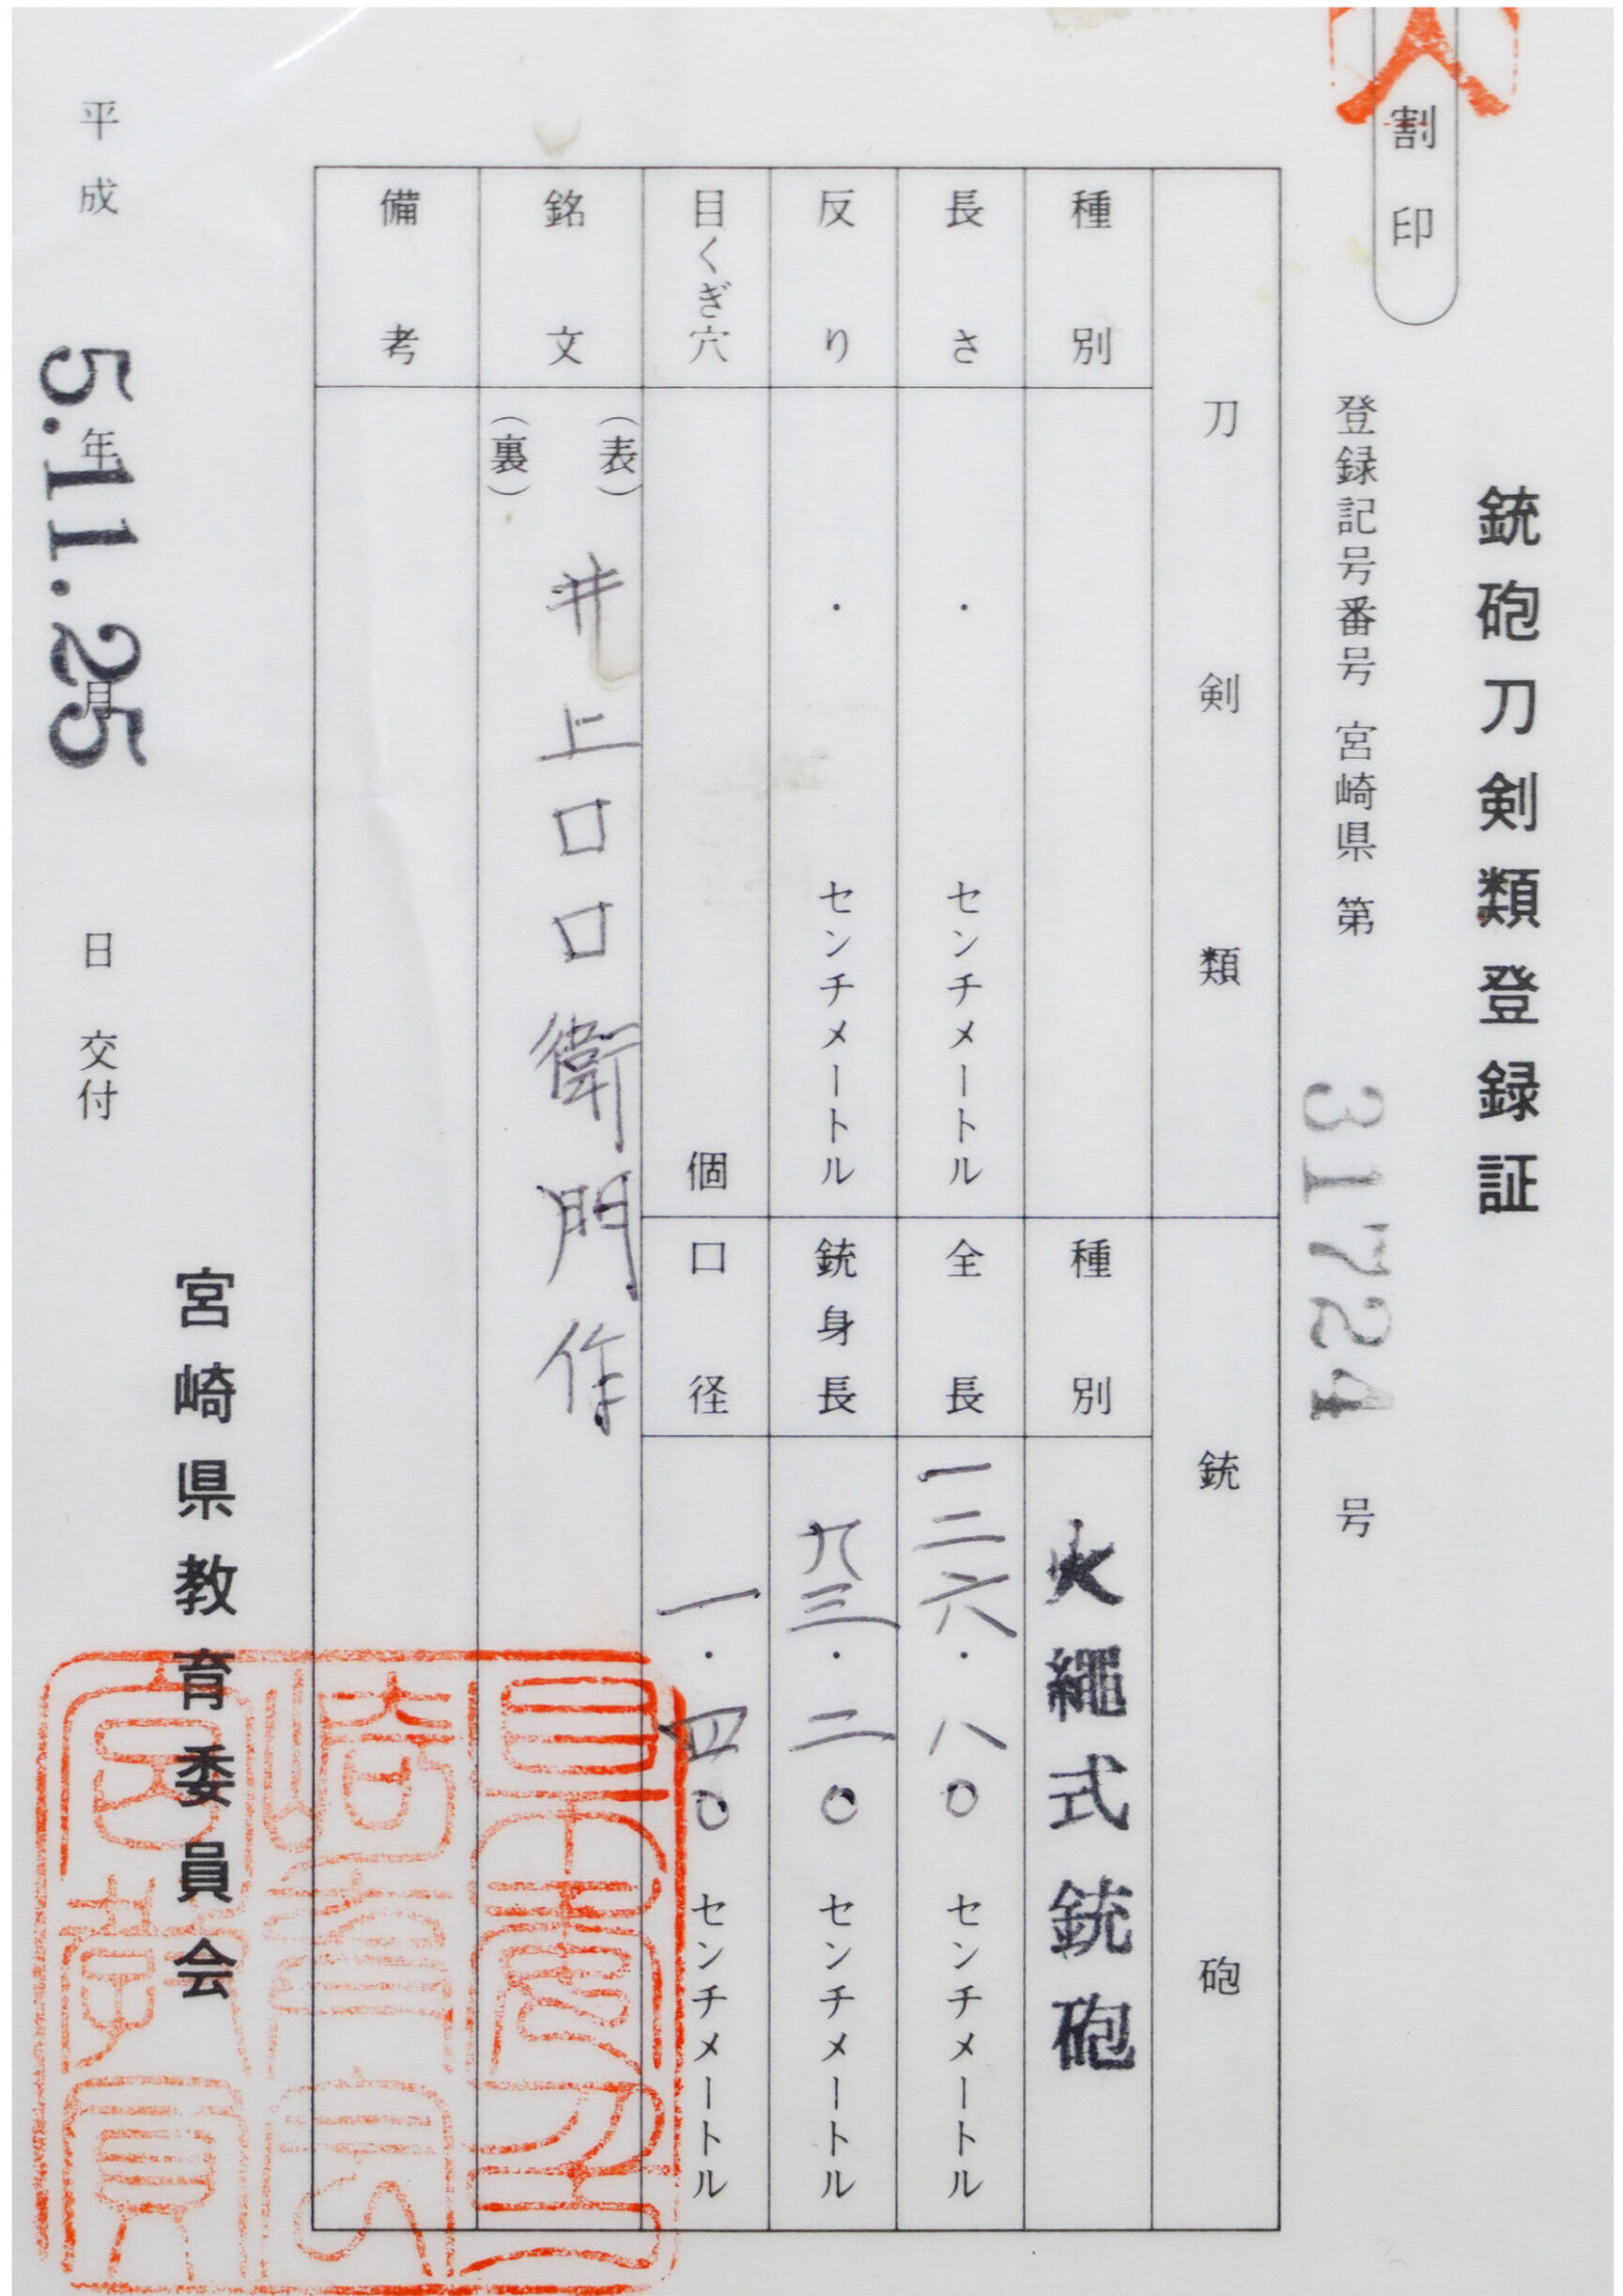 銃砲刀剣類登録証
割印
登録記号番号 宮崎県 第 31724 号
刀剣類
銃砲
種別
種別 火縄式銃砲
長さ ・ センチメートル
全長 一二六・八〇 センチメートル
反り ・ センチメートル
銃身長 九三・二〇 センチメートル
目くぎ穴 個
口径 一・四〇 センチメートル
銘文 (表) 井上口口衛門作
(裏)
備考
宮崎県教育委員会
平成 5.11.25 年 月 日 交付